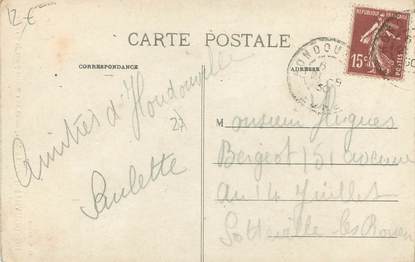 12 €
CARTE POSTALE
CORRESPONDANCE
ADRESSE
REPUBLIQUE FRANÇAISE
15c
Amitiés d'Houdouville
Paulette
M onsieur Hugues
Bergeot 151 avenue
du 14 Juillet
Sotteville les Rouen